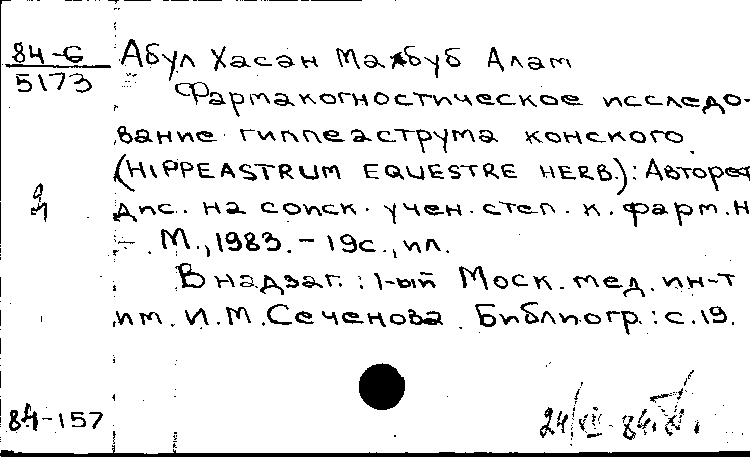 84-6
5173
Абул Хасан Махбуб Алам
Фармакогностическое исследо-
вание гиппеаструма конского
(HIPPEASTRUM EQUESTRE HERB.): Автореф
дис. на соиск. учен. степ. к. фарм. н
- М., 1983. - 19с., ил.
В надзаг.: 1-ый Моск. мед. ин-т
им. И.М. Сеченова. Библиогр.: с. 19.
84-157
24/XII-84.